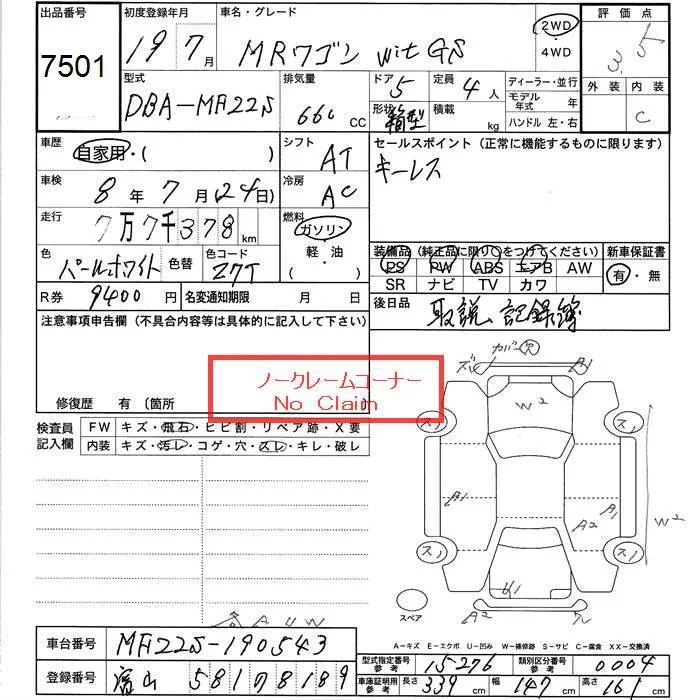 出品番号 初度登録年月 車名・グレード 評価点
7501 19年7月 MRワゴン wit GS 2WD 4WD 3.5
型式 排気量 ドア 5 定員 4人 ディーラー・並行 外装 内装
DBA-MF22S 660CC 形状 箱型 積載 kg モデル年式 年 ハンドル 左・右 C
車歴 自家用・( ) シフト AT セールスポイント (正常に機能するものに限ります)
車検 8年7月24日) 冷房 AC キーレス
走行 7万7千378km 燃料 ガソリン 軽・油 ( )
色 パールホワイト 色替 色コード Z7T
装備品 (純正品に限り○をつけてください) 新車保証書
PS PW ABS エアB AW 有・無
SR ナビ TV カワ
R券 9400円 名変通知期限 月 日 後日品 取説 記録簿
注意事項申告欄 (不具合内容等は具体的に記入して下さい)
ノークレームコーナー
No Claim
修復歴 有 〔箇所
検査員記入欄 FW キズ・飛石・ヒビ割・リペア跡・X要
内装 キズ・汚レ・コゲ・穴・スレ・キレ・破レ
カバー 穴
A1
W2
ス1 ス1
A1 A1 W2
A2
ス1 ス1
U1
スペア A2
A U W
A-キズ E-エクボ U-凹み W-補修跡 S-サビ C-腐食 XX-交換済
車台番号 MF22S-190543
型式指定番号 参考 15276 類別区分番号 参考 0004
登録番号 富山 581 8189
車庫証明用 参考 長さ 339cm 幅 147cm 高さ 161cm